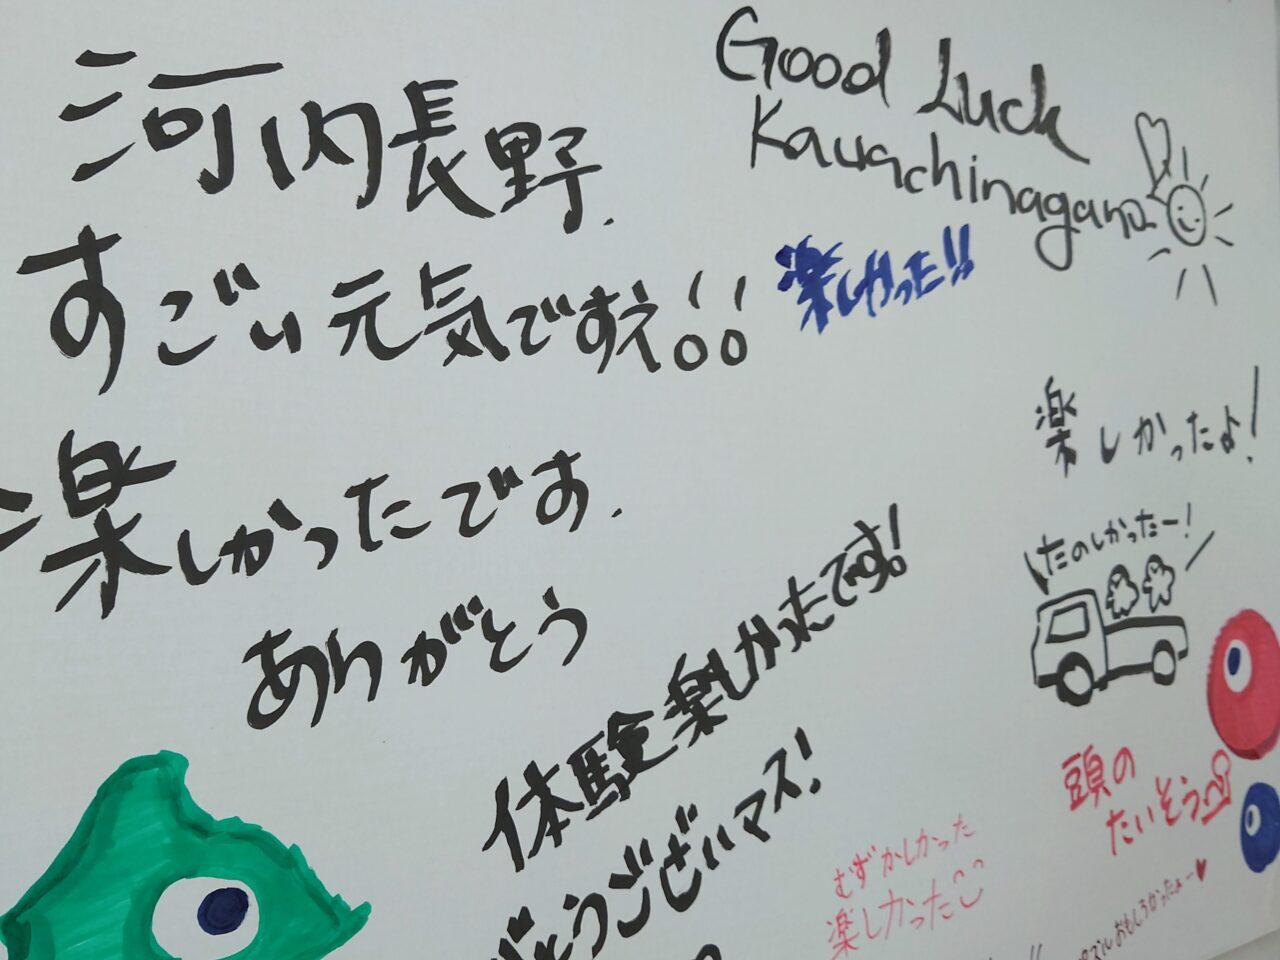 河内長野.
すごい元気ですえ!!
楽しかったです.
ありがとう
Good Luck
Kawachinagano
楽しかった!!
楽しかったよ!
たのしかったー!
体験楽しかったです!
がとうございマス!
頭の
たいそう
むずかしかった
楽しかった
パズルおもしろかったよー♥